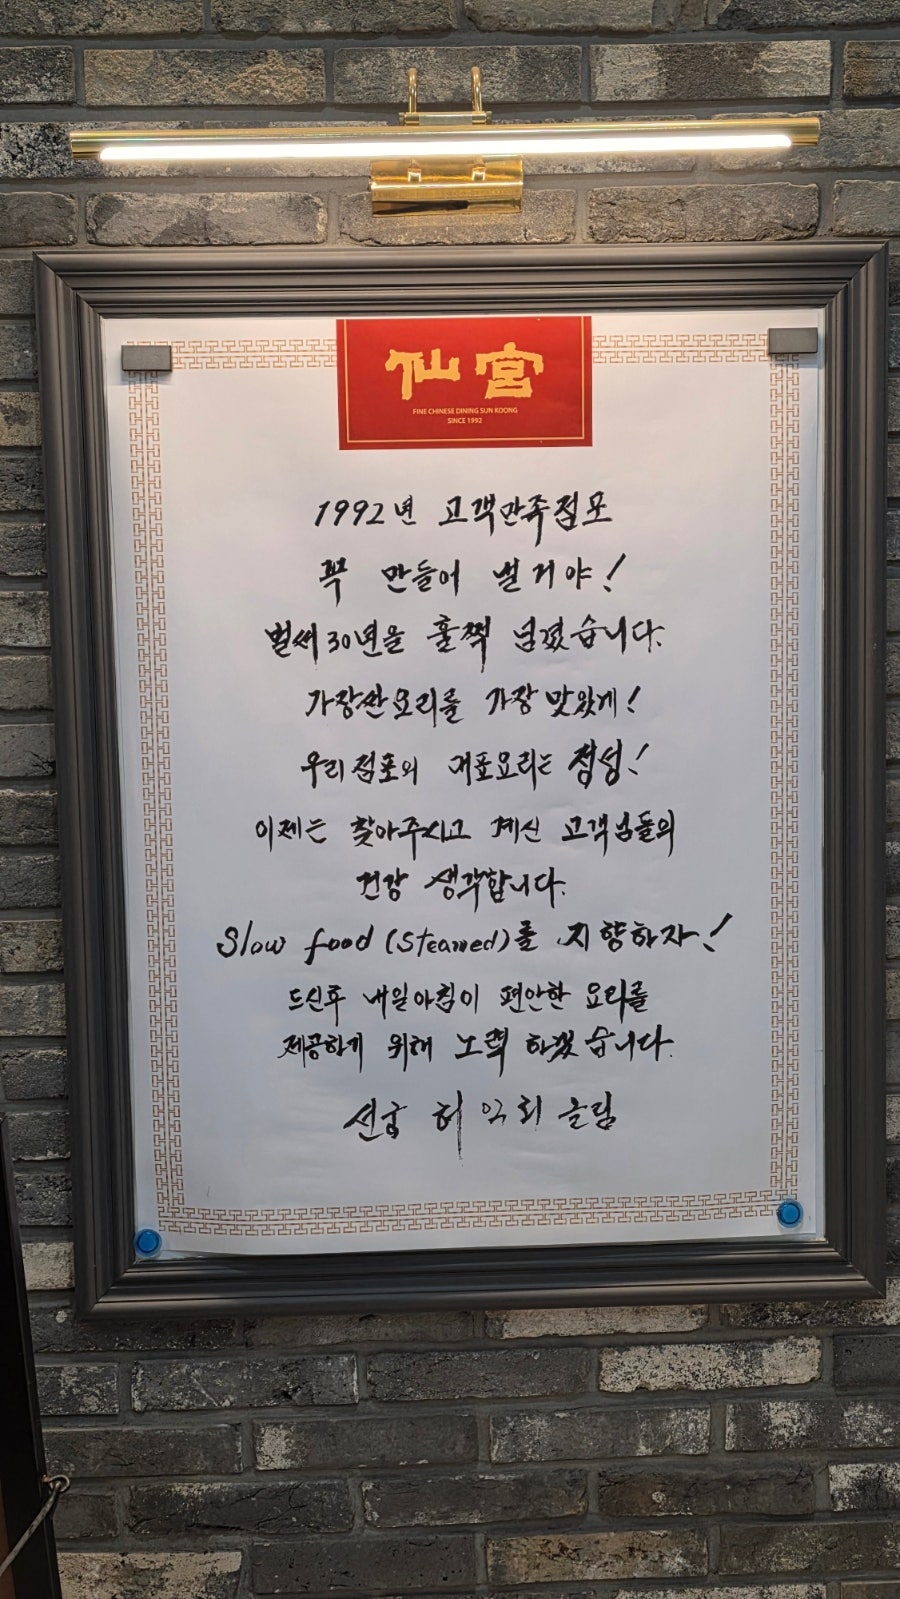 仙宮
FINE CHINESE DINING SUN KOONG
SINCE 1992
1992년 고객만족점포
꼭 만들어 낼거야!
벌써 30년을 훌쩍 넘겼습니다.
가장싼요리를 가장맛있게!
우리점포의 대표요리는 정성!
이제는 찾아주시고 계신 고객님들의
건강 생각합니다.
Slow food (Steamed)를 지향하자!
드신후 내일아침이 편안한 요리를
제공하게 위해 노력 하겠습니다.
선궁 허 회 올림